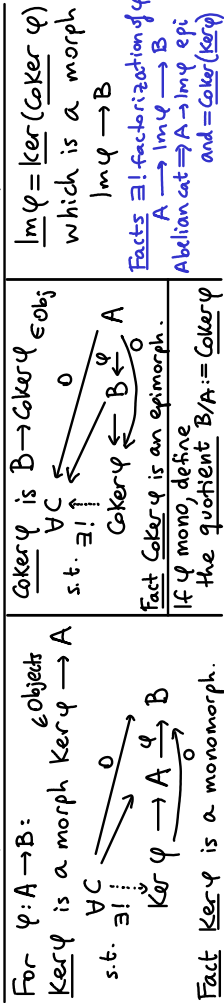 For φ: A → B:
∈ Objects
Ker φ is a morph Ker φ → A
∀C
0
s.t. ∃!
Ker φ → A →φ B
0
Fact Ker φ is a monomorph.
Coker φ is B → Coker φ ∈ Obj
∀C
0
s.t. ∃!
Coker φ ← B ←φ A
0
Fact Coker φ is an epimorph.
If φ mono, define
the quotient B/A := Coker φ
Im φ = Ker(Coker φ)
which is a morph
Im φ → B
Facts ∃! factorization of φ
A → Im φ → B
Abelian cat ⇒ A → Im φ epi
and = Coker(Ker φ)